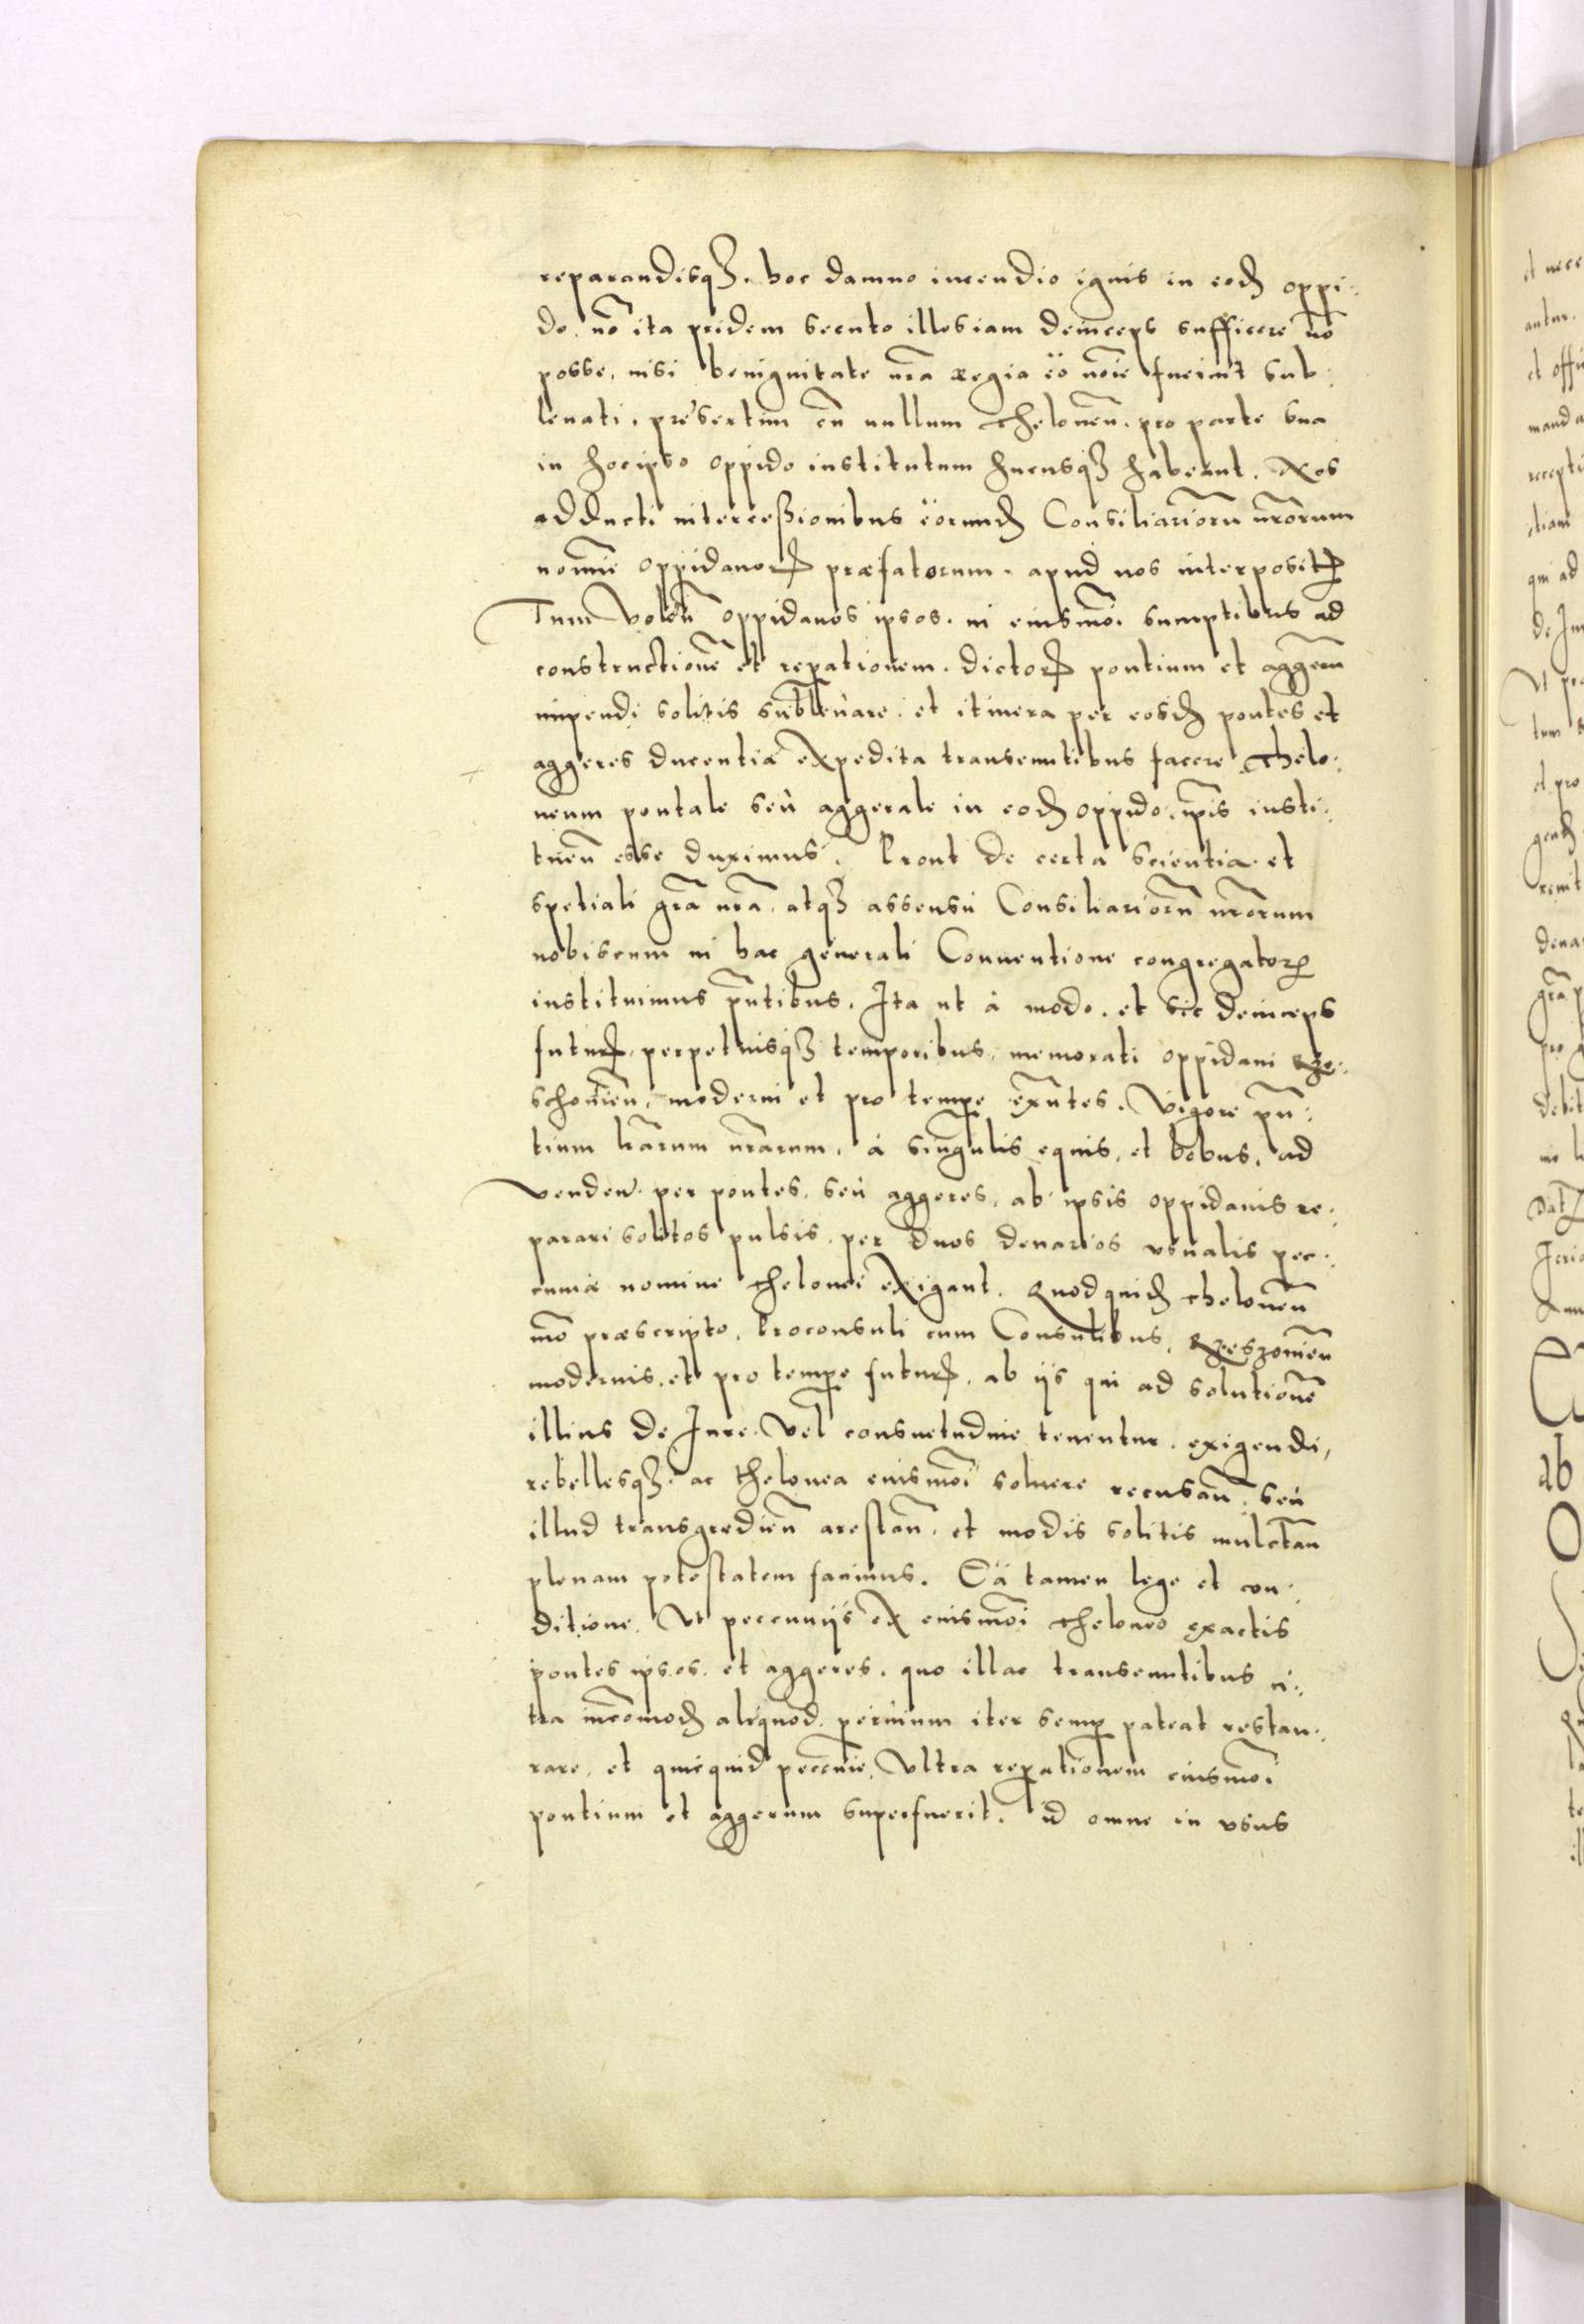 reparandisqꝫ. hoc damno incendio ignis in eodꝫ oppi:
do. nō ita pridem secuto illos iam deinceps sufficere nō
posse. nisi benignitate nr̄a regia eo noīe fuerint sub:
leuati. presertim cū nullum theloneū. pro parte sua
in hocipso oppido institutum hucusqꝫ habeant. Nos
adducti intercessionibus eorundꝫ Consiliarioru nr̄orum
nomīe oppidanorꝫ præfatorum. apud nos interpositꝭ
Tum volen̄ oppidanos ipsos. in eiusmōi sumptibus ad
constructionē et repationem. dictorꝝ pontium et aggerū
impendi solitis subleuare. et itinera per eosdꝫ pontes et
aggeres ducentia expedita transeuntibus facere. Thelo:
neum pontale seu aggerale in eodꝫ oppido. ip̄is insti:
tuen̄ esse duximus. Prout de certa scientia et
spetiali gr̄a nr̄a. atqꝫ assensu Consiliariorū nr̄orum
nobiscum in hac generali Conuentione congregatorꝝ
instituimus p̄ntibus. Ita ut à modo. et sic deinceps
futurꝭ. perpetuisqꝫ temporibus. memorati oppidani Rze:
schouien̄. moderni et pro tempe exn̄tes. Vigore pn̄:
tium lr̄arum nr̄arum. à singulis equis. et bobus. ad
venden̄. per pontes. seu aggeres. ab ipsis oppidanis re:
parari solitos pulsis. per duos denarios vsualis pec:
cuniæ nomine thelonei exigant. Quodquidꝫ theloneū
mō præscripto. Proconsuli cum Consulibus. Rzeszouien̄
modernis. et pro tempe futurꝭ. ab ijs qui ad solutionē
illius de Jure. vel consuetudine tenentur. exigendi,
rebellesqꝫ. ac thelonea eiusmōi soluere recusan̄. seu
illud transgredien̄ arestan̄. et modis solitis mulctan̄
plenam potestatem facimus. Ea tamen lege et con:
ditione. Vt peccunijs ex eiusmōi theloneo exactis
pontes ipsos. et aggeres. quo illac transeuntibus ci:
tra incōmodꝫ aliquod. peruium iter semp pateat restau:
rare. et quicquid peccunie. Vltra repationem eiusmōi
pontium et aggerum superfuerit. id omne in vsus